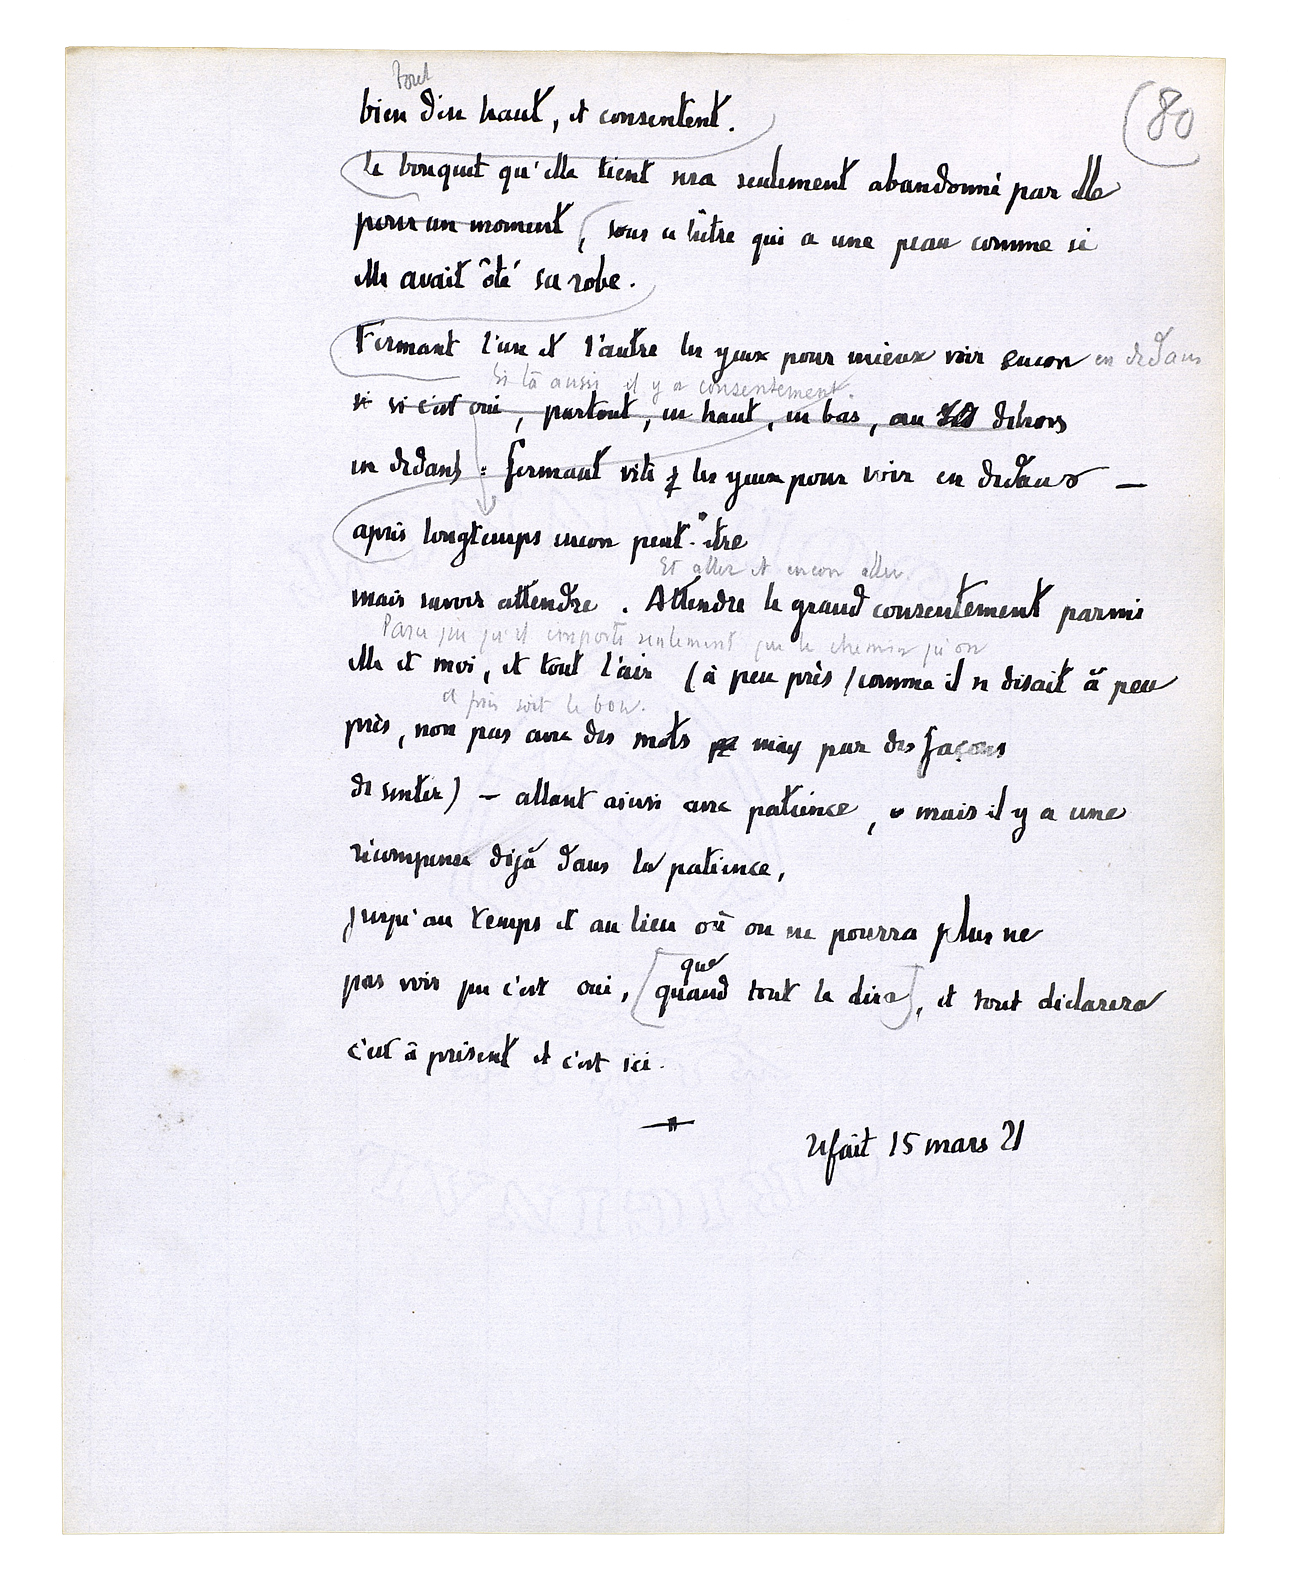 (80
tout
bien dire haut, et consentent.
Le bouquet qu'elle tient sera seulement abandonné par elle
pour un moment, sous ce hêtre qui a une peau comme si
elle avait ôté sa robe.
Fermant l'un et l'autre les yeux pour mieux voir encore en dedans
Si là aussi il y a consentement.
si si c'est oui, partout, en haut, en bas, au dehors
en dedans : fermant vite les yeux pour voir en dedans —
après longtemps encore peut-être
Et aller et encore aller.
mais savoir attendre. Attendre le grand consentement parmi
Parce qu'il importe seulement que le chemin qu'on
elle et moi, et tout l'air (à peu près / comme il se disait à peu
a pris soit le bon.
près, non pas avec des mots mais par des façons
de sentir) — allant ainsi avec patience, mais il y a une
récompense déjà dans la patience,
jusqu'au temps et au lieu où on ne pourra plus ne
que
pas voir que c'est oui, [quand tout le dira], et tout déclarera
c'est à présent et c'est ici.
refait 15 mars 21